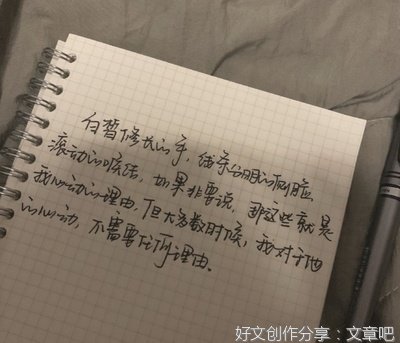 白皙修长的手，线条分明的侧脸、
滚动的喉结，如果非要说，那这些就是
我心动的理由，但大多数时候，我对于他
的心动，不需要任何理由。
好文创作分享：文章吧